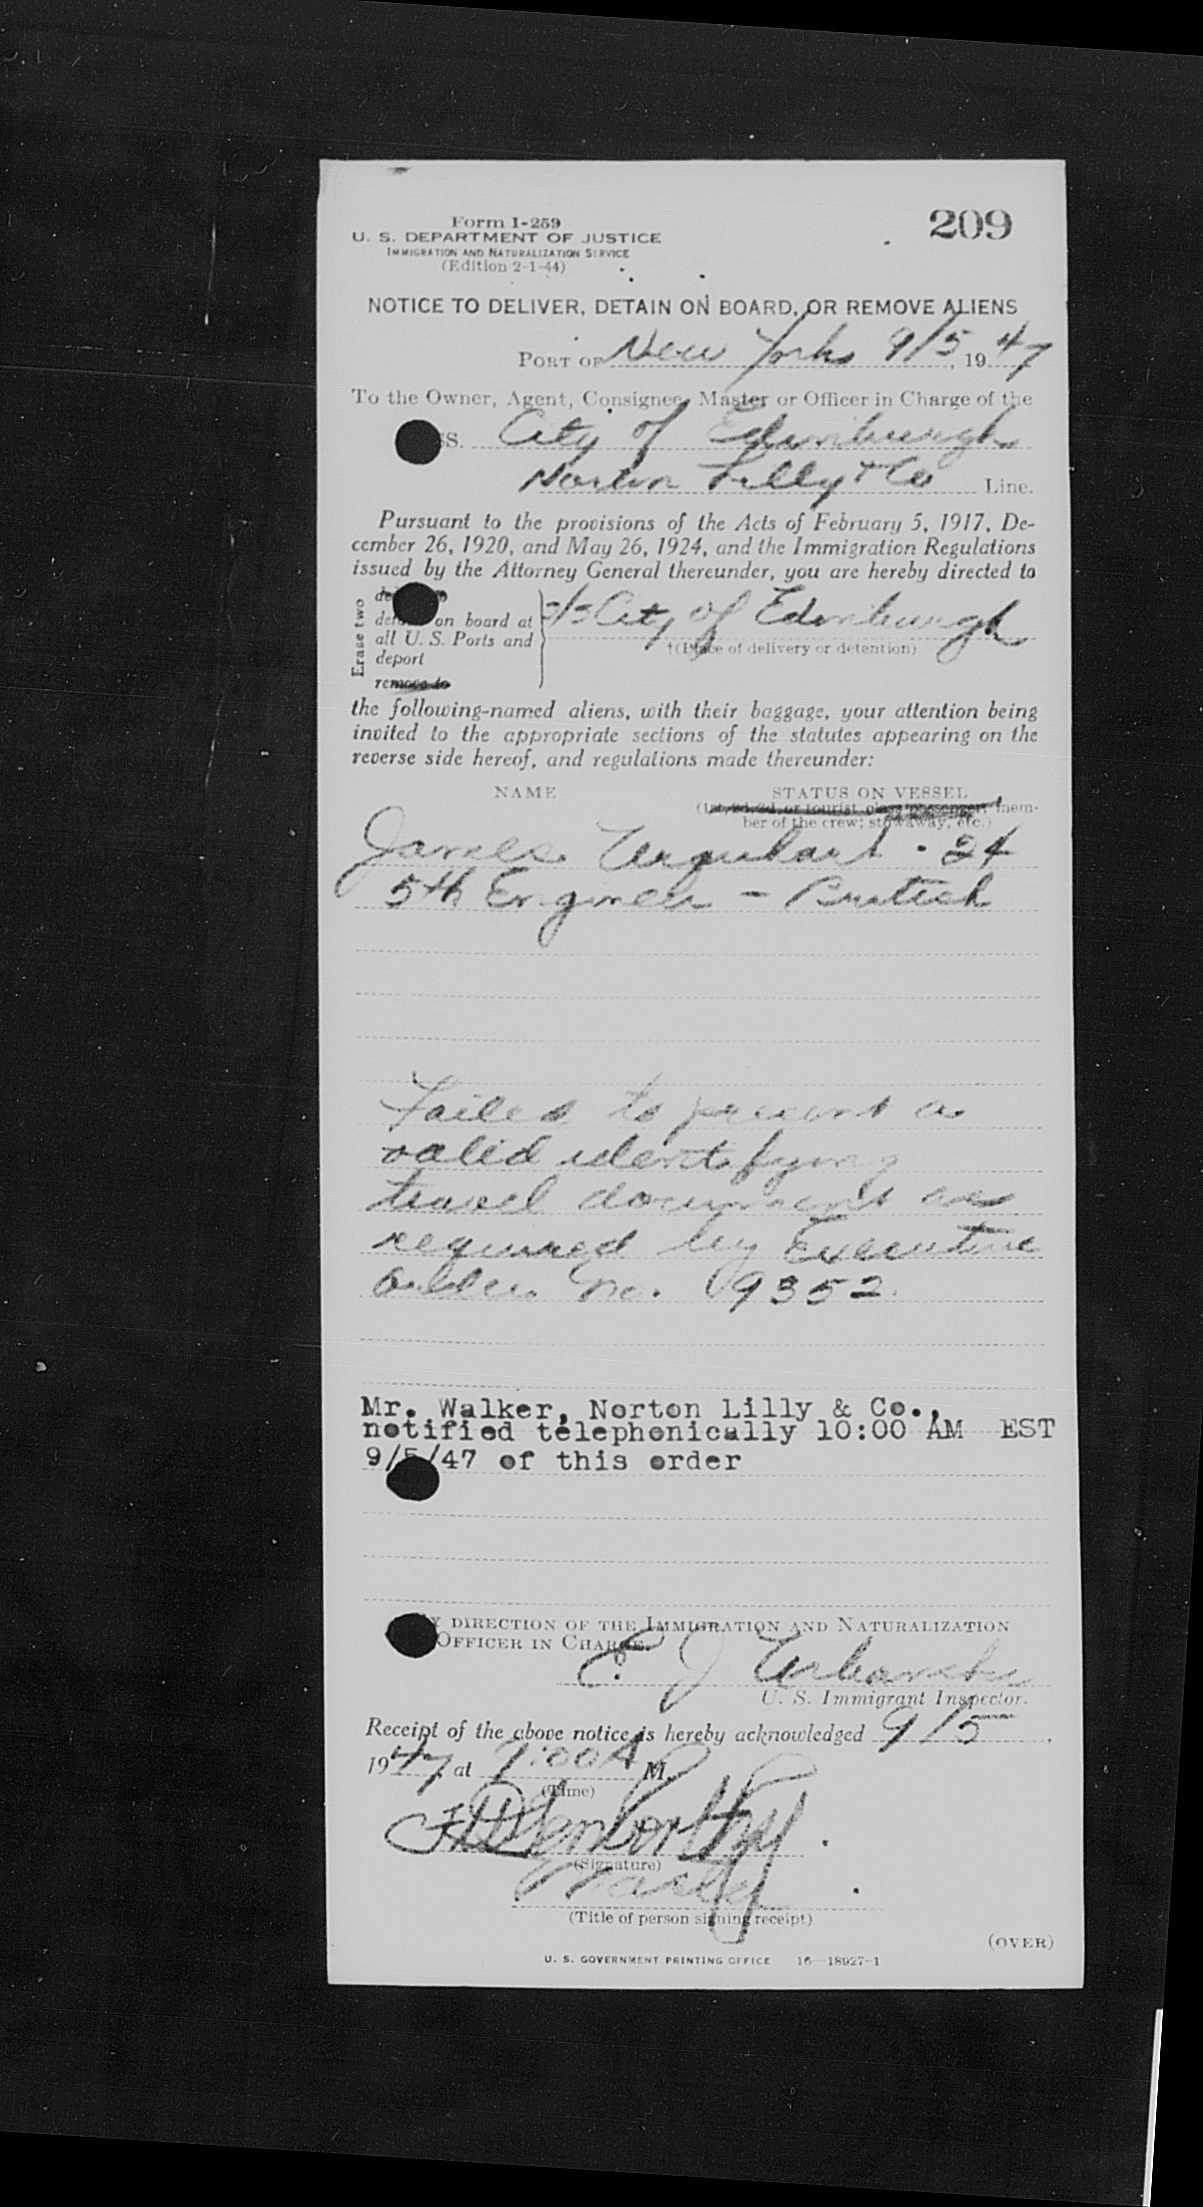 Form I-259
209
U. S. DEPARTMENT OF JUSTICE
IMMIGRATION AND NATURALIZATION SERVICE
(Edition 2-1-44)
NOTICE TO DELIVER, DETAIN ON BOARD, OR REMOVE ALIENS
PORT OF New York 9/5, 1947
To the Owner, Agent, Consignee, Master or Officer in Charge of the
SS. City of Edinburgh
Norton Lilly & Co Line.
Pursuant to the provisions of the Acts of February 5, 1917, De-
cember 26, 1920, and May 26, 1924, and the Immigration Regulations
issued by the Attorney General thereunder, you are hereby directed to
Erase two
on board at
all U. S. Ports and
deport
remove to
s/s City of Edinburgh
†(Place of delivery or detention)
the following-named aliens, with their baggage, your attention being
invited to the appropriate sections of the statutes appearing on the
reverse side hereof, and regulations made thereunder:
NAME STATUS ON VESSEL
(1st, 2d, 3d, or tourist class passenger, mem-
ber of the crew; stowaway, etc.)
James Urquhart - 24
5th Engineer - British
Failed to present a
valid identifying
travel document as
required by Executive
Order No. 9352.
Mr. Walker, Norton Lilly & Co.,
notified telephonically 10:00 AM EST
9/5/47 of this order
BY DIRECTION OF THE IMMIGRATION AND NATURALIZATION
OFFICER IN CHARGE.
E. J. Urbanski
U. S. Immigrant Inspector.
Receipt of the above notice is hereby acknowledged 9/5,
1947 at :00 A M.
(Time)
(Signature)
Master
(Title of person signing receipt)
(OVER)
U. S. GOVERNMENT PRINTING OFFICE 16—18927-1